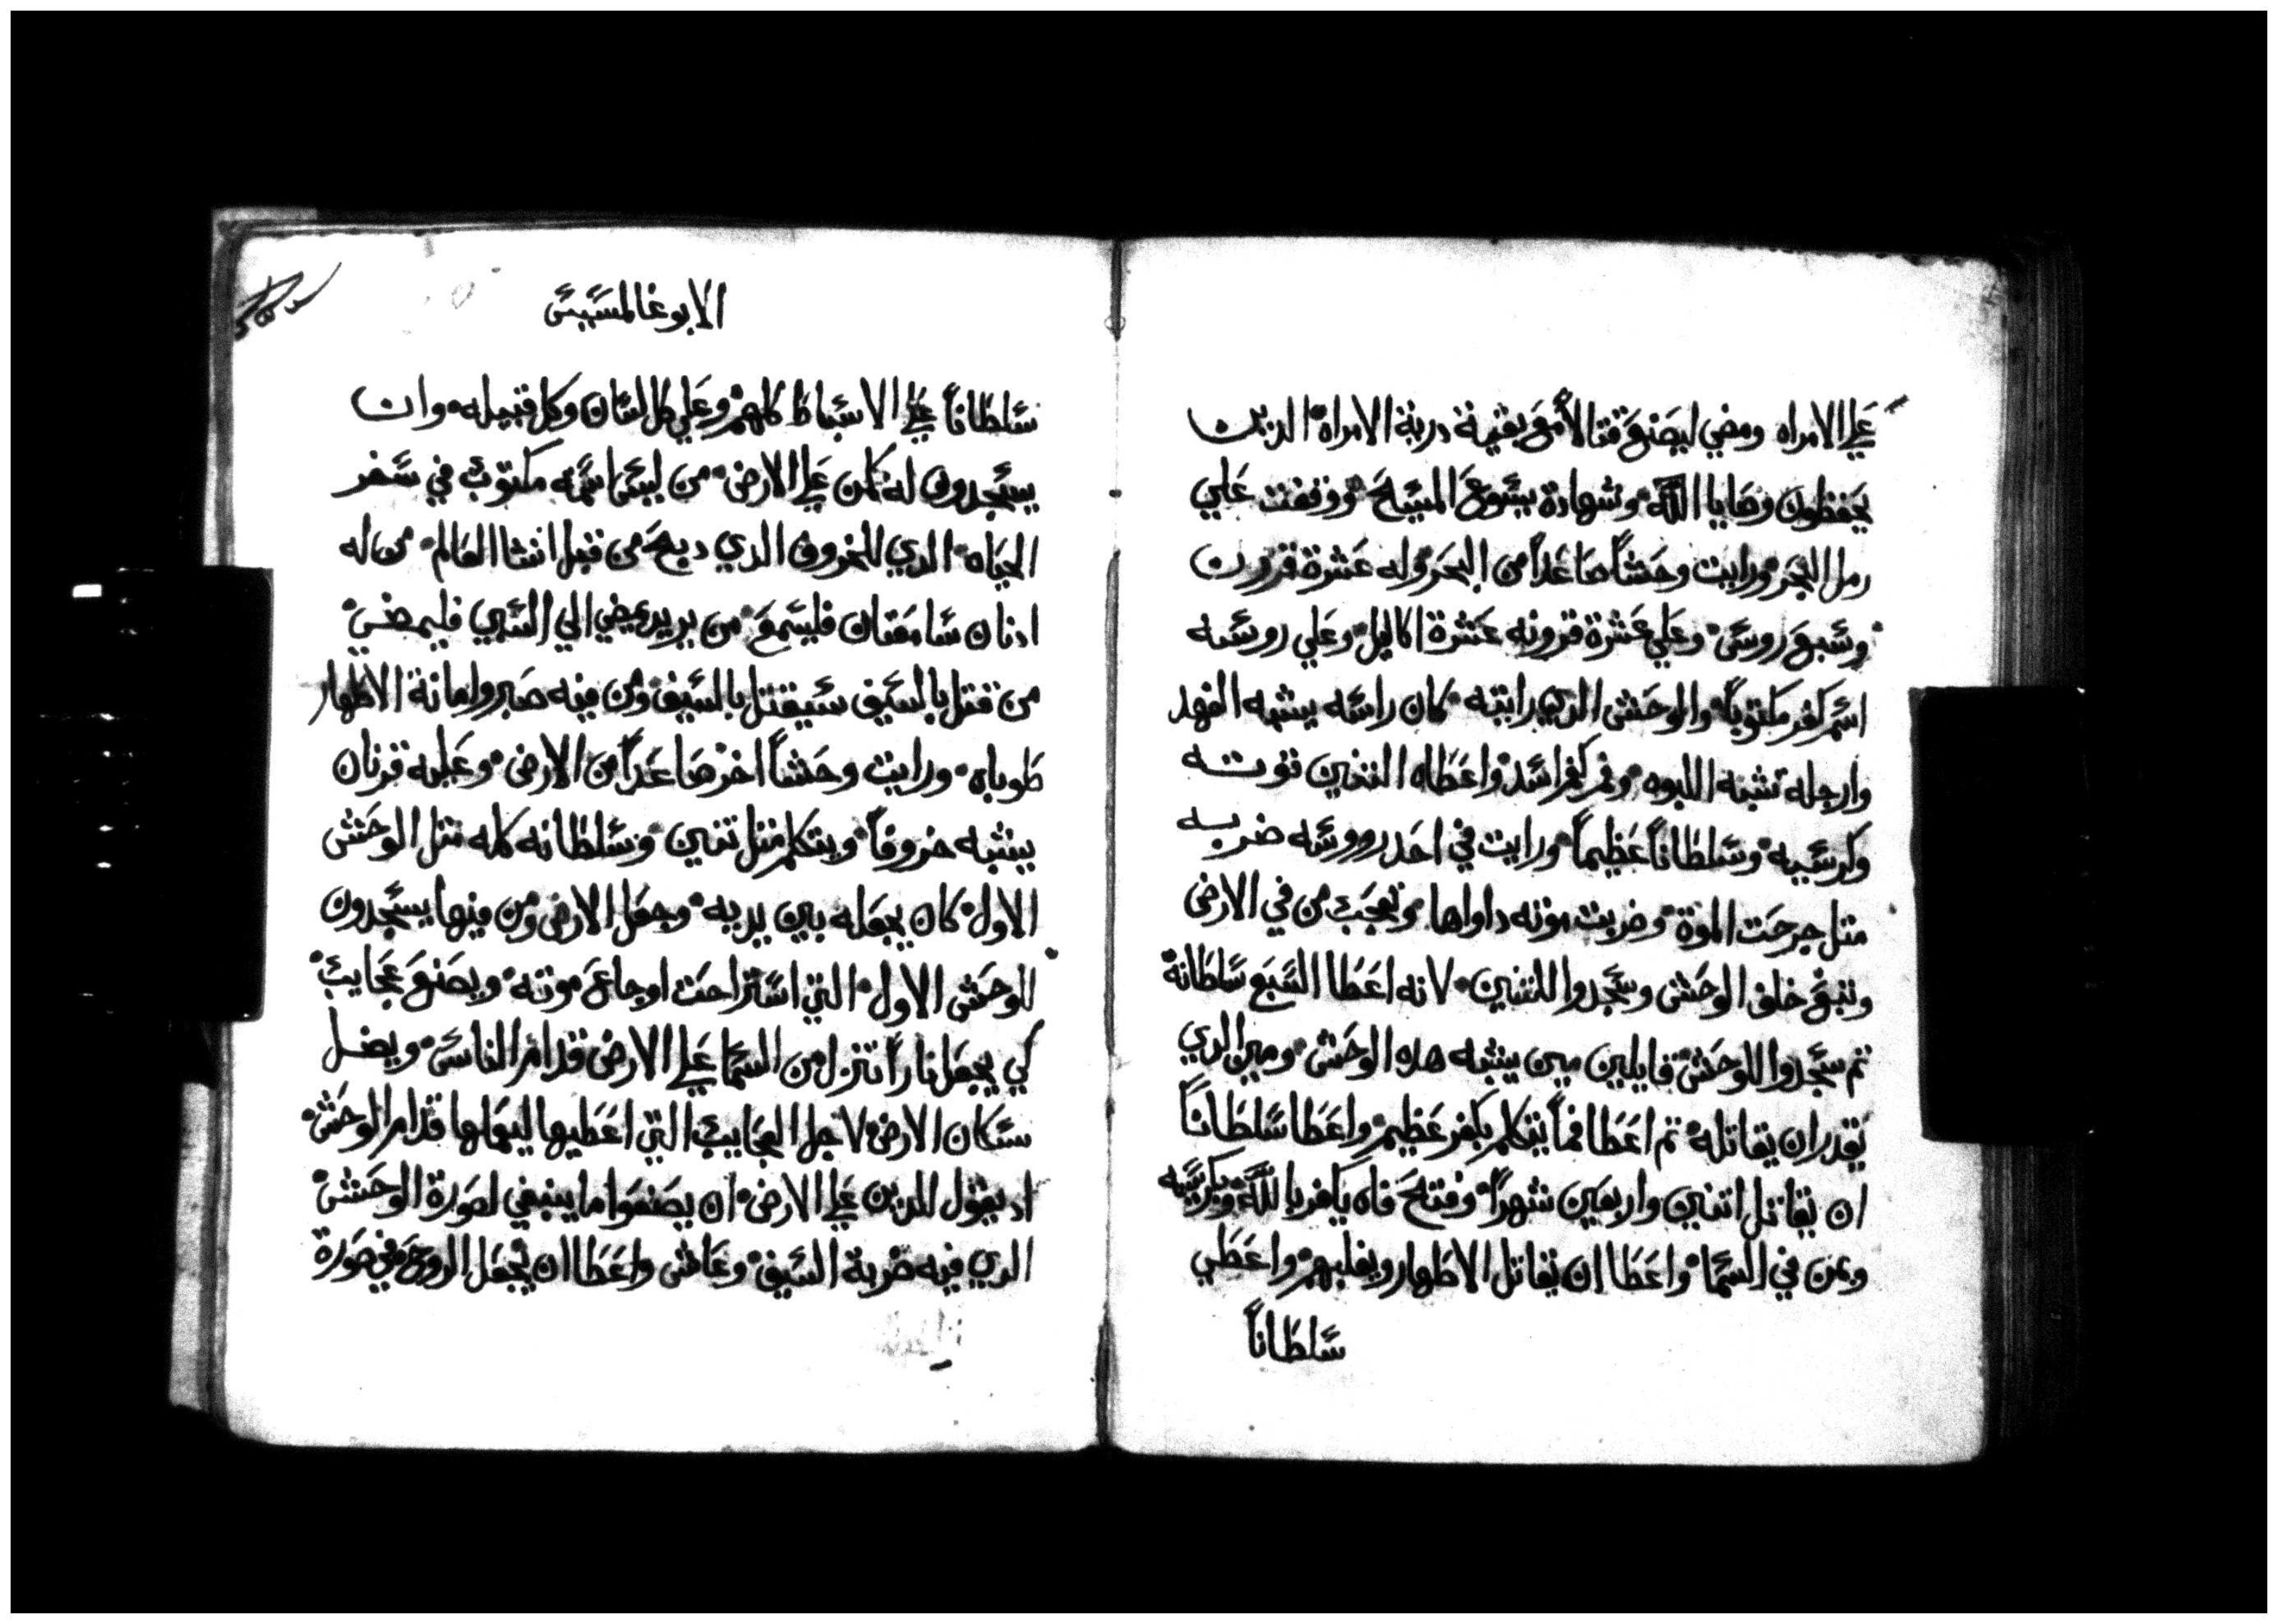 علي الامراه ومضي ليصنع قتالاً مع بقية درية الامراه الدين
يحفظون وصايا الله وشهادة يسوع المسيح ووقفت علي
رمل البحر ورايت وحشاً صاعداً من البحر وله عشرة قرون
وسبع روس وعلي عشرة قرونه عشرة اكاليل وعلي روسه
اسم كفر مكتوباً والوحش الدي رايته كان راسه يشبه الفهد
وارجله تشبه اللبوه وفم كفم اسد واعطاه التنين قوته
وكرسيه وسلطاناً عظيماً ورايت في احد رووسه ضربه
متل جرحت الموة وضربت موته داواها وتعجب من في الارض
وتبع خلف الوحش وسجدوا للتنين لانه اعطا السبع سلطانه
تم سجدوا للوحش قايلين مين يشبه هده الوحش ومين الدي
يقدر ان يقاتله تم اعطا فماً يتكلم بكفر عظيم واعطا سلطاناً
ان يقاتل اتنين واربعين شهراً وفتح فاه يكفر بالله وبكرسيه
وبمن في السما واعطا ان يقاتل الاطهار ويغلبهم واعطي
سلطاناً
الابوغالمسيس
سلطاناً علي الاسباط كلهم وعلي كل لسان وكل قبيله وان
يسجدون له كلمن علي الارض من ليس اسمه مكتوب في سفر
الحياه الدي للخروف الدي دبح من قبل انشا العالم من له
ادنان سامعتان فليسمع من يريد يمضي الي السبي فليمضي
من قتل بالسيف سيقتل بالسيف ومن فيه صبر وامانة الاطهار
طوباه ورايت وحشاً اخر صاعداً من الارض وعليه قرنان
يشبه خروفاً ويتكلم متل تنين وسلطانه كله متل الوحش
الاول كان يجعله بين يديه وجعل الارض ومن فيها يسجدون
للوحش الاول التي استراحت اوجاع موته ويصنع عجايب
كي يجعل ناراً تنزل من السما علي الارض قدام الناس ويضل
سكان الارض لاجل العجايب التي اعطيها ليعملها قدام الوحش
اد يقول للدين علي الارض ان يصنعوا ما ينبغي لصورة الوحش
الدي فيه ضربة السيف وعاش واعطا ان يجعل الروح في صورة